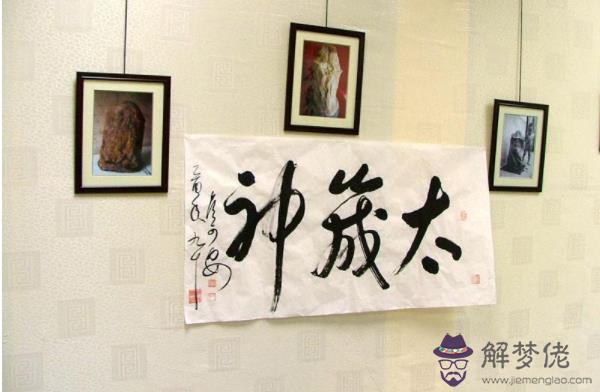 太歲神
乙酉 九十
解梦佬
www.jiemenglao.com